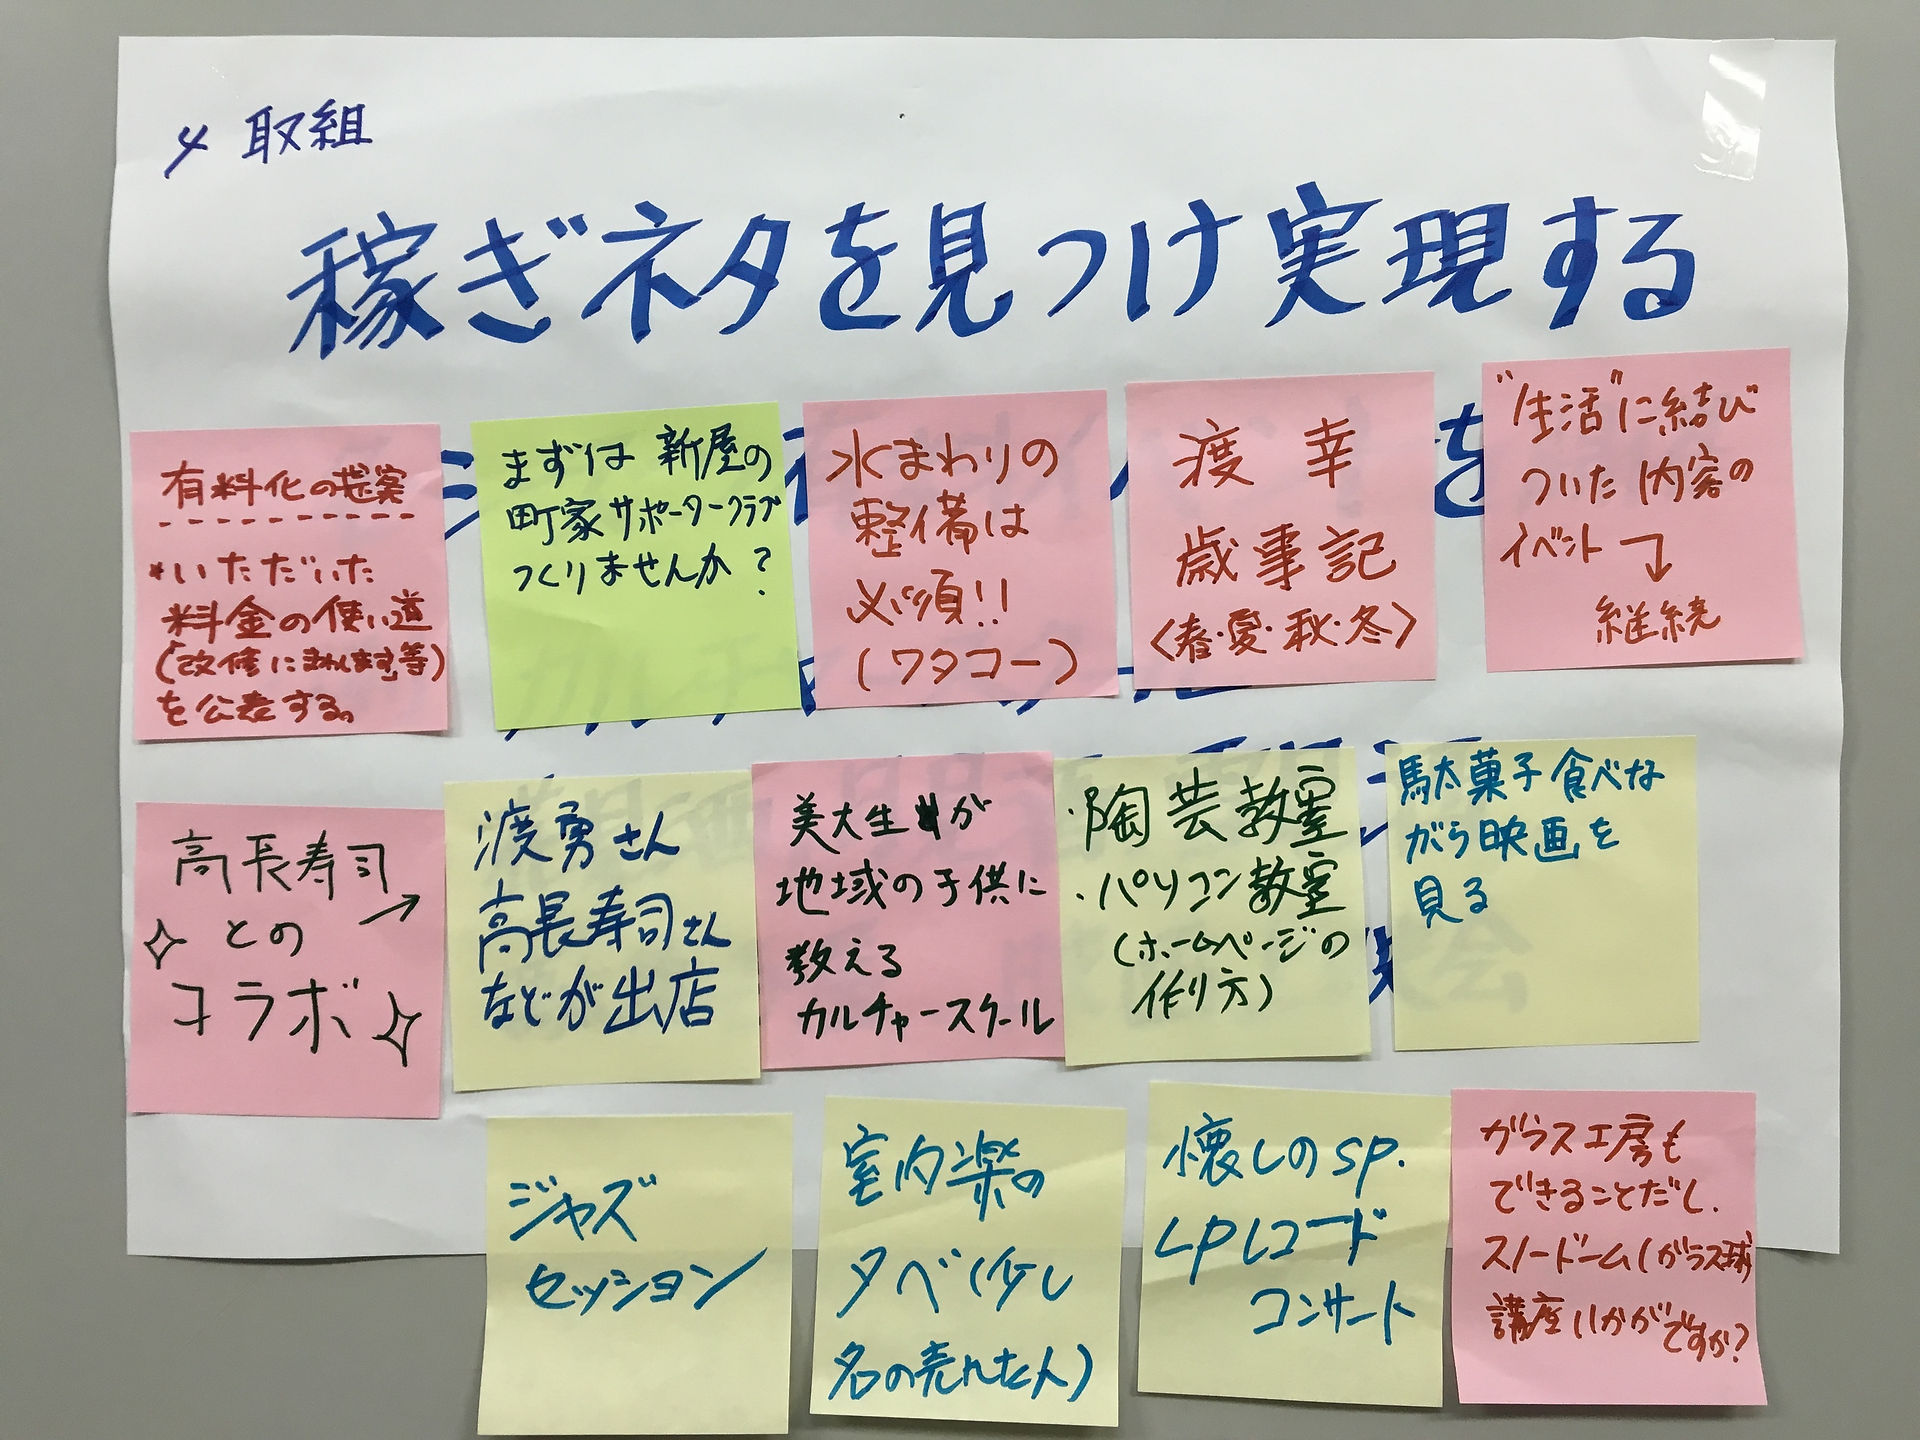 4 取組
稼ぎネタを見つけ実現する
有料化の提案
・いただいた
料金の使い道
(「改修にまわします」等)
を公表する。
まずは 新屋の
町家サポータークラブ
つくりませんか?
水まわりの
整備は
必須!!
(ワタコー)
渡 幸
歳事記
〈春・夏・秋・冬〉
"生活"に結び
ついた内容の
イベント
継続
高長寿司
との
コラボ
渡勇さん
高長寿司さん
などが出店
美大生が
地域の子供に
教える
カルチャースクール
・陶芸教室
・パソコン教室
(ホームページの
作り方)
駄菓子食べな
がら映画を
見る
ジャズ
セッション
室内楽の
夕べ(少し
名の売れた人)
懐しのSP.
LPレコード
コンサート
ガラス工房も
できることだし.
スノードーム(ガラス球)
講座いかがですか?